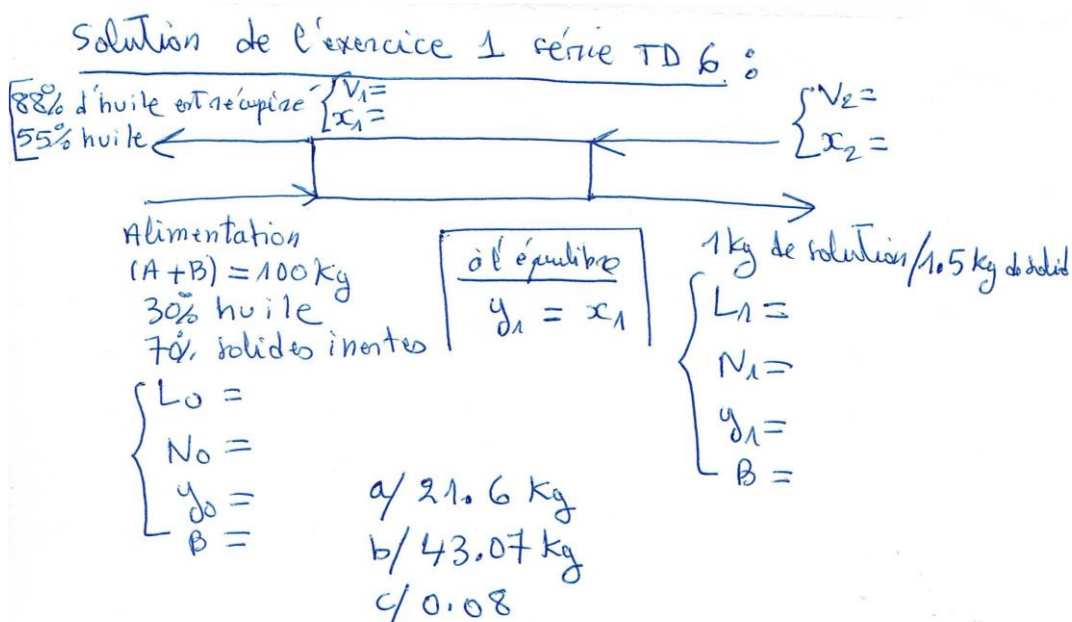 Solution de l'exercice 1 série TD 6 :
88% d'huile est récupiré
55% huile
V₁=
x₁=
V₂=
x₂=
Alimentation
(A+B) = 100 kg
30% huile
70% solides inertes
L₀ =
N₀ =
y₀ =
B =
à l'équilibre
y₁ = x₁
1kg de solution/1.5 kg de solid
L₁=
N₁=
y₁=
B =
a/ 21.6 kg
b/ 43.07 kg
c/ 0.08